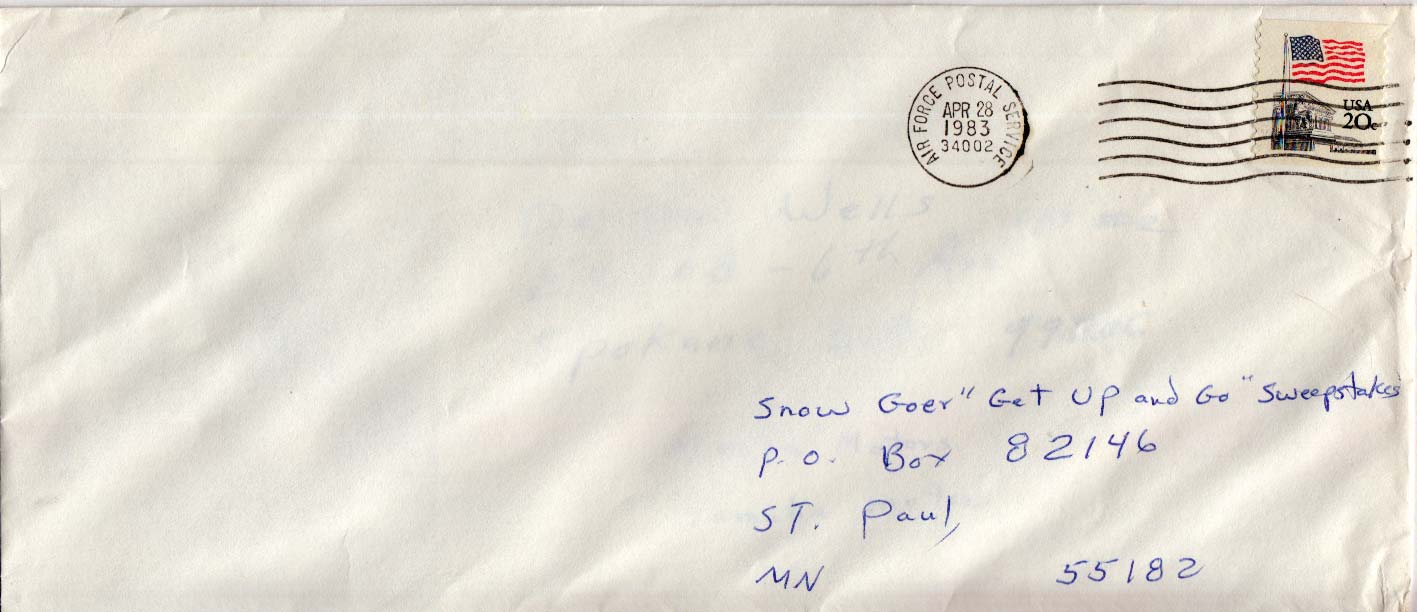 AIR FORCE POSTAL SERVICE
APR 28
1983
34002
USA
20c
Wells
- 6th
Snow Goer "Get Up and Go" Sweepstakes
P.O. Box 82146
ST. Paul,
MN 55182